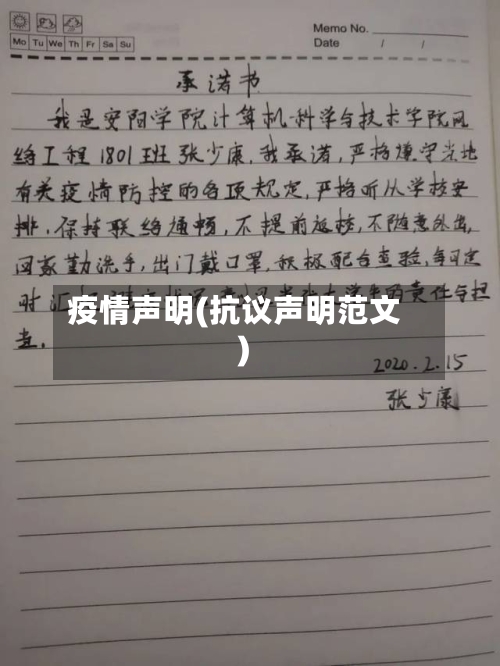 Memo No.
Mo Tu We Th Fr Sa Su
Date / /
承诺书
我是安阳学院计算机科学与技术学院网
络工程1801班张少康,我承诺,严格遵守当地
有关疫情防控的各项规定,严格听从学校安
排,保持联络通畅,不提前返校,不随意外出,
回家勤洗手,出门戴口罩,积极配合查验,每日定
时汇
的责任与担
疫情声明(抗议声明范文
)
当.
2020.2.15
张少康